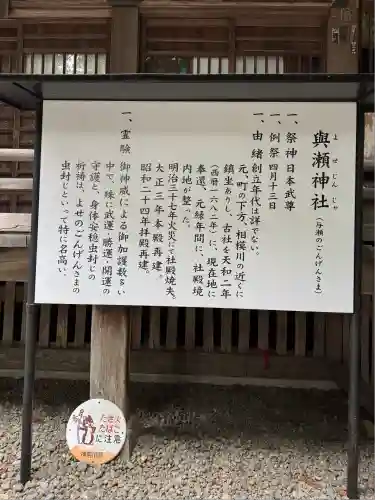 與瀬神社
よせじんじゃ
(与瀬のごんげんさま)
一、祭神 日本武尊
一、例祭 四月十三日
一、由緒 創立年代は詳でない。
元、町の下方、相模川の近くに
鎮坐ありし、古社を天和二年
(西暦一六八二年)に、現在地に
奉還、元緑年間に、社殿境
内地が整った。
明治三十七年火災にて社殿焼失。
大正三年本殿再建。
昭和二十四年拝殿再建。
一、霊験 御神威による御加護数多い
中で、殊に武運・勝運・開運の
守護と、身体安穏虫封じの
祈祷は、よせのごんげんさまの
虫封じといって特に名高い。
たき火
たばこ
注意